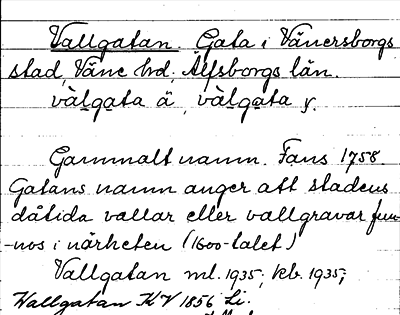 Vallgatan. Gata i Vänersborgs
stad, Väne hd, Älfsborgs län.
vàlgata ä, vàlgata y.
Gammalt namn. Fans 1758.
Gatans namn anger att stadens
dåtida vallar eller vallgravar fun-
-nos i närheten (1600-talet)
Vallgatan ml. 1935; kb. 1935;
Wallgatan KV 1856 Li.